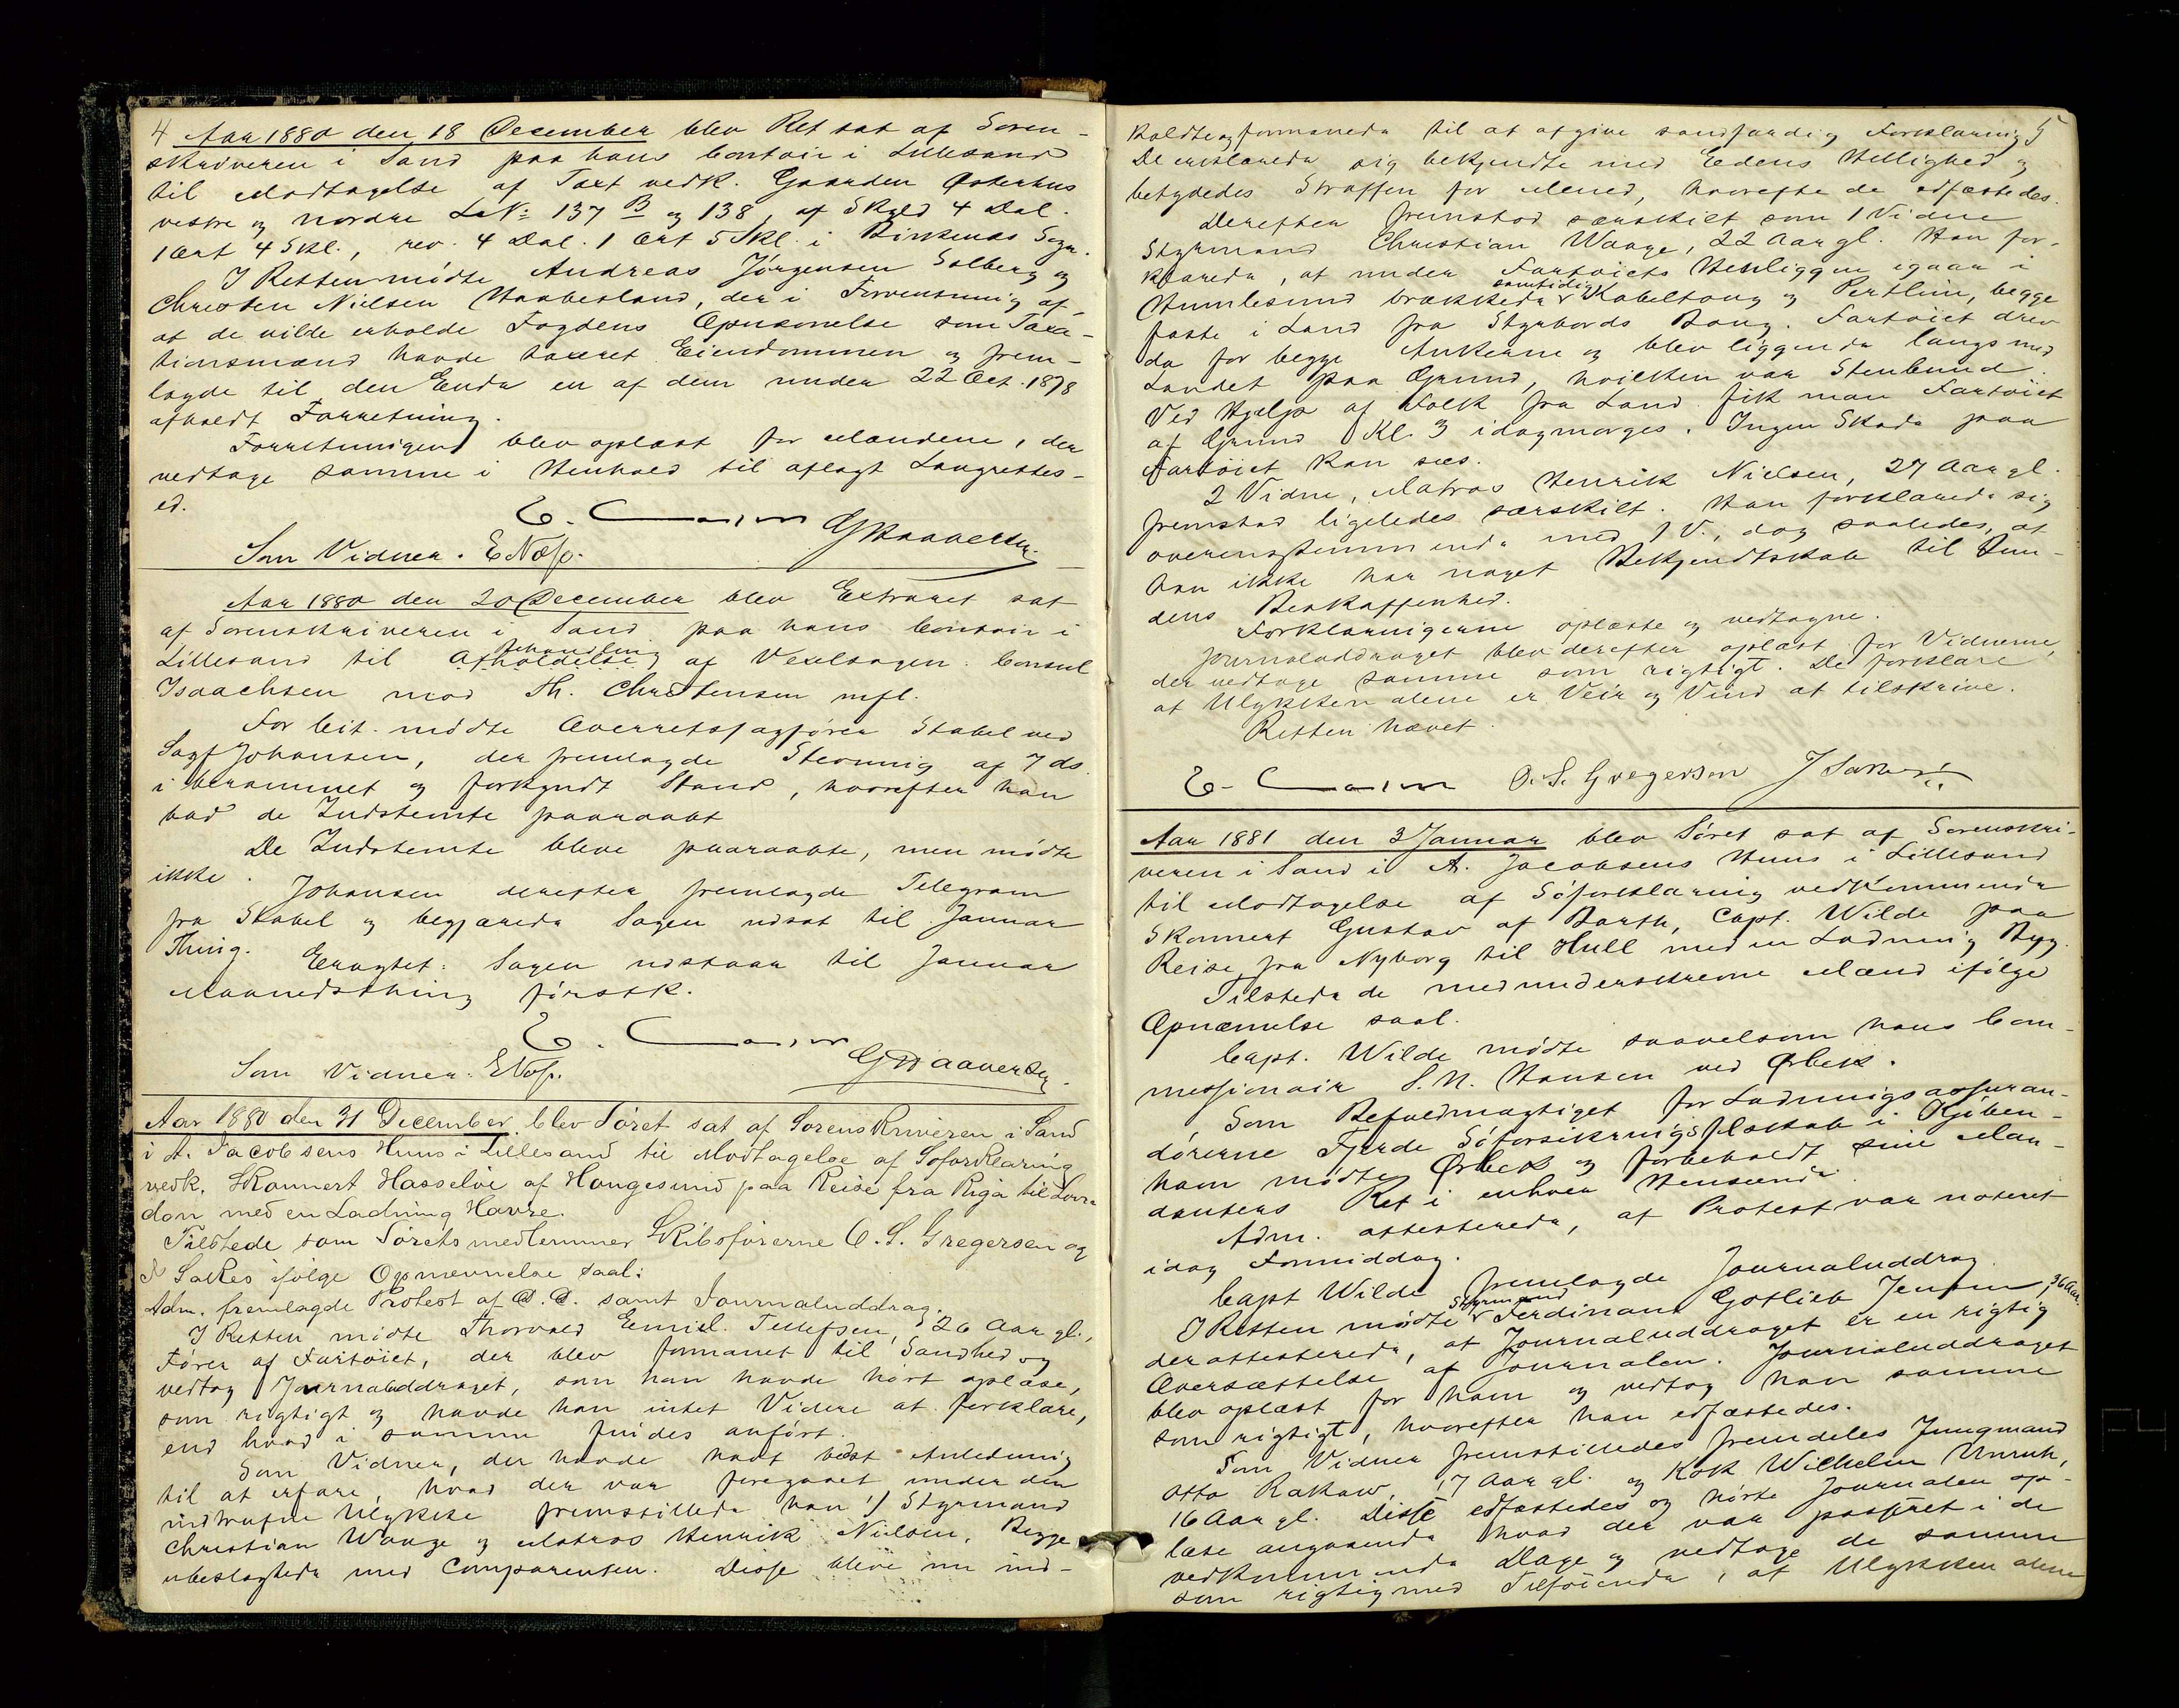 4 Aar 1880 den 18 December blev Ret sat af Soren-
skriveren i Sand paa hans Contoir i Lillesand
til Modtagelse af Taxt vedk. Gaarden Østerhus
vestre og nordre LNo 137 B og 138, af Skyld 4 Dal.
1 Ort 4 Skl., rev. 4 Dal. 1 Ort 5 Skl. i Birkenæs Sogn.
I Retten mødte Andreas Jørgensen Solberg og
Christen Nielsen Haabesland, der i Forventning af,
at de vilde erholde Fogdens Opnævnelse som Taxa-
tionsmænd havde taxeret Eiendommen og frem-
lagde til den Ende en af dem under 22 Oct. 1878
afholdt Forretning.
Forretningen blev oplæst for Mændene, der
vedtoge samme i Henhold til aflagt Laugrettes-
ed.
Som Vidner.
Aar 1880 den 20 December blev Extraret sat
af Sorenskriveren i Sand paa hans Contoir i
Lillesand til Afholdelse behandling af Vexelsagen: Consul
Isaachsen mod Th. Christensen mfl.
For Cit. mødte Overretssagfører Stabel ved
Sagf Johansen, der fremlagde Stevning af 7 ds.
i berammet og forkyndt Stand, hvorefter han
bad de Indstemte paaraabt
De Indstemte bleve paaraabte, men mødte
ikke.
Johansen derefter fremlagde Telegram
fra Stabel og begjærede Sagen udsat til Januar
Thing.
Eragtet: Sagen udstaar til Januar
Maanedsthing førstk.
Som Vidner:
Aar 1880 den 31 December blev Søret sat af Sorenskriveren i Sand
i A. Jacobsens Huus i Lillesand til Modtagelse af Søforklaring
vedk. Skonnert Hasseløe af Haugesund paa Reise fra Riga til Lon-
don med en Ladning Havre.
Tilstede som Søretsmedlemmer Skibsførerne O. S. Gregersen og
J Salves ifølge Opnævnelse saal:
Adm. fremlagde Protest af D. D. samt Journaluddrag.
I Retten mødte Thorvald Emil Tellefsen, 26 Aar gl.,
Fører af Fartøiet, der blev formanet til Sandhed og
vedtog Journaluddraget, som han havde hørt oplæse,
som rigtigt og havde han intet Videre at forklare,
end hvad i samme findes anført.
Som Vidner, der havde havt bedst Anledning
til at erfare, hvad der var foregaaet under den
indtrufne Ulykke fremstillede han 1) Styrmand
Christian Waage og Matros Henrik Nielsen. Begge
ubeslægtede med Comparenten. Disse bleve nu ind-
kaldte og formanede til at afgive sandfærdig Forklaring 5
De erklærede sig bekjendte med Edens Hellighed og
betydedes Straffen for Mened, hvorefter de edfæstedes.
Derefter fremstod særskilt som 1 Vidne
Styrmand Christian Waage, 22 Aar gl. Han for-
klarede, at under Fartøiets Henliggen igaar i
Humlesund brækkede samtidig Kabeltoug og Pertlin, begge
faste i Land fra Styrbords Boug. Fartøiet drev
da for begge Ankerne og blev liggende langs med
Landet paa Grund, hvilken var Stenbund.
Ved Hjælp af Folk fra Land fik man Fartøiet
af Grund Kl. 3 idagmorges. Ingen Skade paa
Fartøiet kan sees.
2 Vidne, Matros Henrik Nielsen, 27 Aar gl.
fremstod ligeledes særskilt. Han forklarede sig
overensstemmende med 1 V., dog saaledes, at
han ikke har noget Bekjendtskab til Bun-
dens Beskaffenhed.
Forklaringerne oplæste og vedtagne.
Journaluddraget blev derefter oplæst for Vidnerne,
der vedtoge samme som rigtigt. De forklare
at Ulykken alene er Veir og Vind at tilskrive.
Retten hævet.
O. S. Gregersen J Salves
Aar 1881 den 3 Januar blev Søret sat af Sorenskri-
veren i Sand i A. Jacobsens Huus i Lillesand
til Modtagelse af Søforklaring vedkommende
Skonnert Gustav af Barth, Capt. Wilde paa
Reise fra Nyborg til Hull med en Ladning Byg.
Tilstede de medunderskrevne Mænd ifølge
Opnævnelse saal.
Capt. Wilde mødte saavelsom hans Com-
missionair S. N. Hansen ved Ørbek.
Som Befuldmægtiget for Ladningsassuran-
dørerne Fjerde Søforsikringsselskab i Kjøben-
havn mødte Ørbek og forbeholdt sine Man-
danters Ret i enhver Henseende.
Adm. attesterede, at Protest var noteret
idag Formiddag.
Capt Wilde fremlagde Journaluddrag
I Retten mødte Styrmand Ferdinand Gotlieb Jensen, 36 Aar,
der attesterede, at Journaluddraget er en rigtig
Oversættelse af Journalen. Journaluddraget
blev oplæst for ham og vedtog han samme
som rigtigt, hvorefter han edfæstedes.
Som Vidner fremstilledes fremdeles Jungmand
Otto Rakaw, 17 Aar gl. og Kok Wilhelm Unruh,
16 Aar gl. Disse edfæstedes og hørte Journalen op-
læse angaaende hvad der var passeret i de
vedkommende Dage og vedtoge de samme
som rigtig med Tilføiende, at Ulykken alene